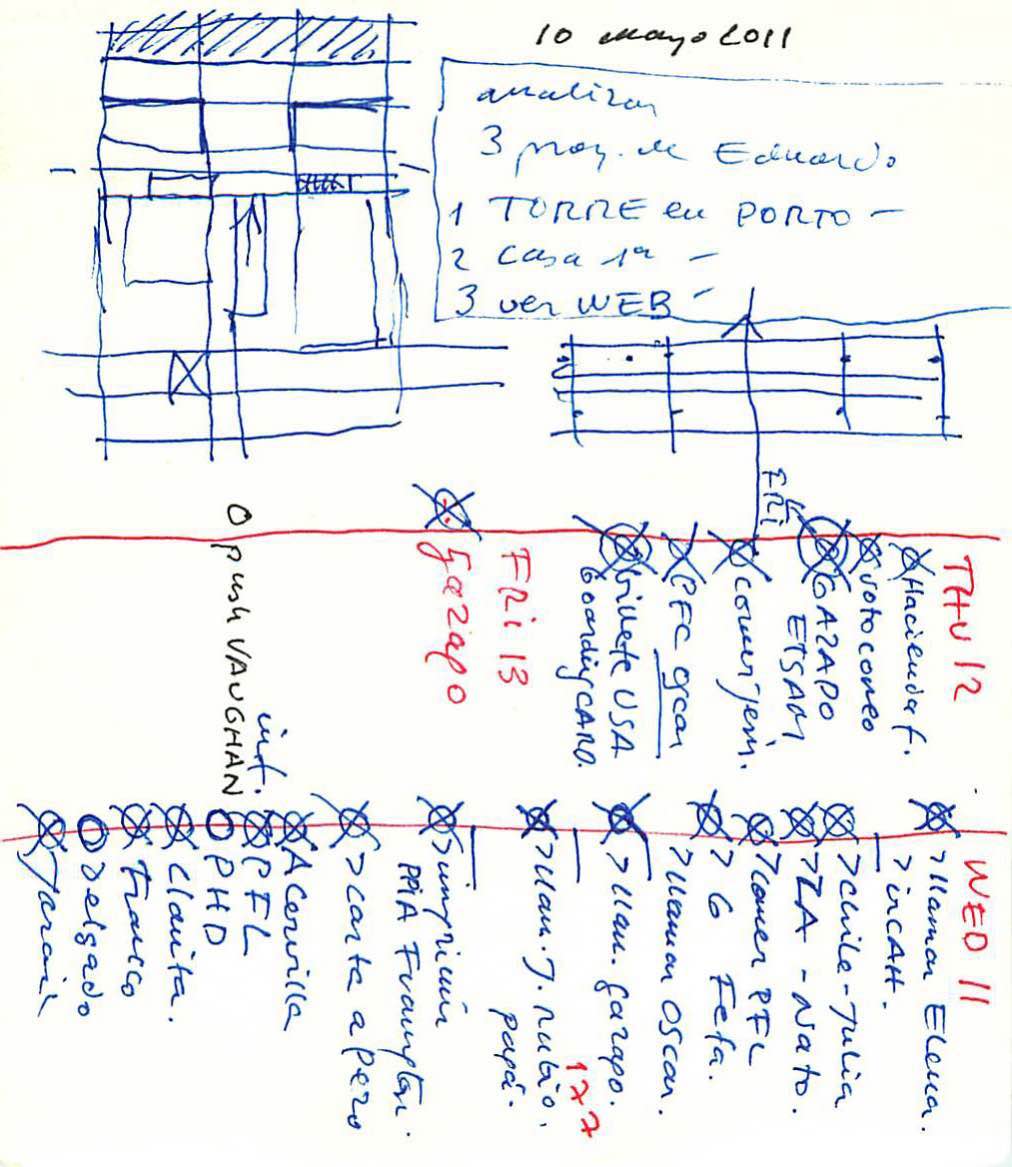 10 mayo 2011
analizar
3 proy. de Eduardo
1 TORRE en PORTO -
2 casa 1ª -
3 ver WEB -
FRI
THU 12
Hacienda f.
voto correo
GAZAPO
ETSAM
comer jeri.
PFC oscar
billete USA
boarding CARD.
FRI 13
Gazapo
push VAUGHAN
WED 11
> llamar Elena.
> ir CAH.
> chile - Julia
> ZA - Nato.
> comer PFL
> G Fefa.
> llamar OScar.
> llam. gazapo.
177
> llam. J. rubio.
papá.
> imprimir
PPiA Frampton.
> carta a pezo
A Corvilla
PFL
inf.
PHD
Clarita.
Franco
Delgado